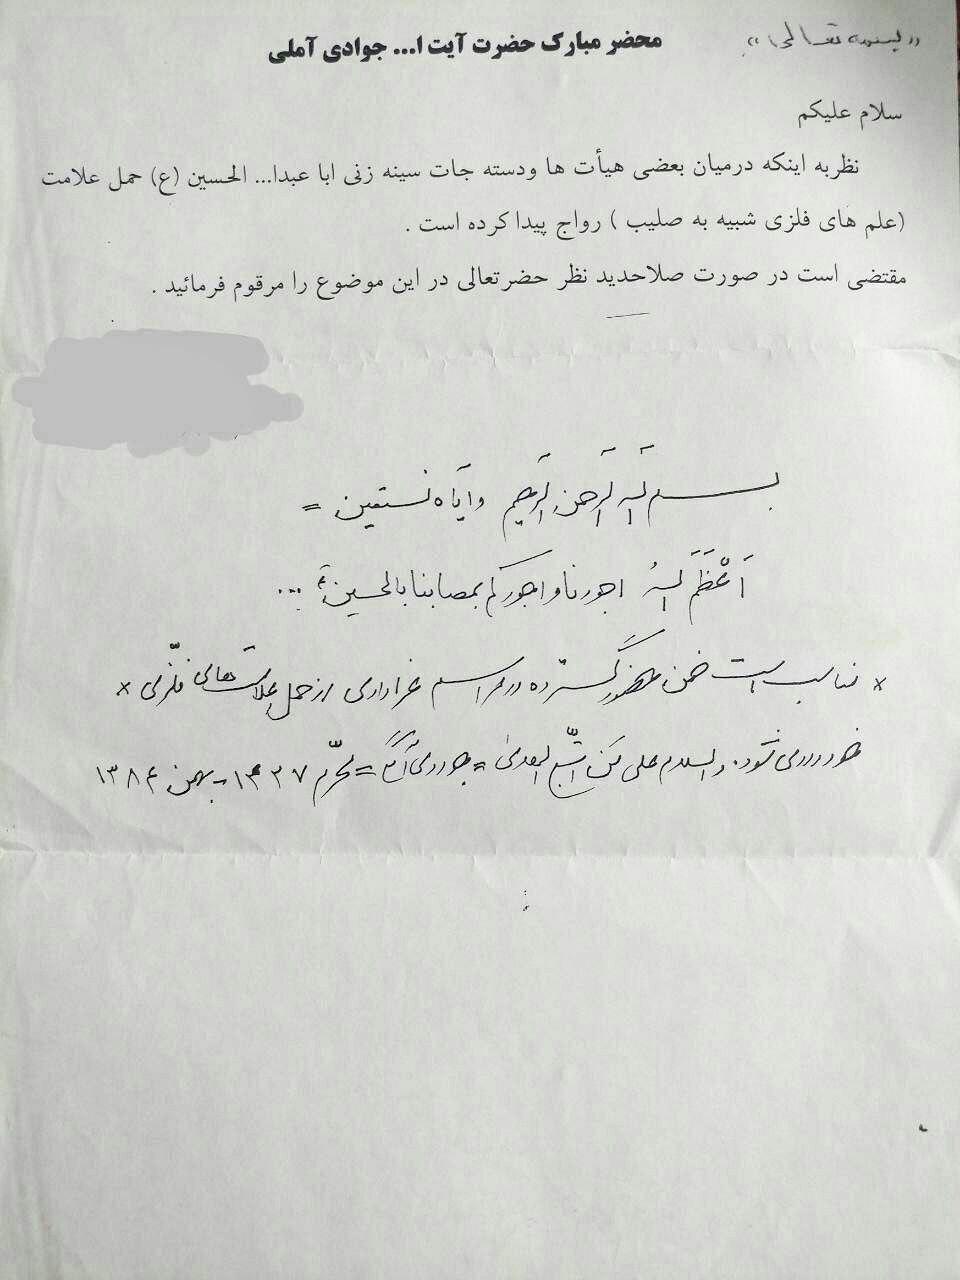 «بسمه تعالی»
محضر مبارک حضرت آیت ا... جوادی آملی
سلام علیکم
نظربه اینکه درمیان بعضی هیأت ها ودسته جات سینه زنی ابا عبدا... الحسین (ع) حمل علامت
(علم های فلزی شبیه به صلیب ) رواج پیدا کرده است .
مقتضی است در صورت صلاحدید نظر حضرتعالی در این موضوع را مرقوم فرمائید .
بسم الله الرحمن الرحیم و ایاه نستعین =
اَعْظَمَ اللهُ اجورنا و اجورکم بمصابنا بالحسین ع ...
× مناسب است ضمن حضور گسترده در مراسم عزاداری از حمل علامتهای فلزی ×
خودداری شود. والسلام علی من اتّبع الهدی = جوادی آملی = محرّم ۱۴۲۷ - بهمن ۱۳۸۴